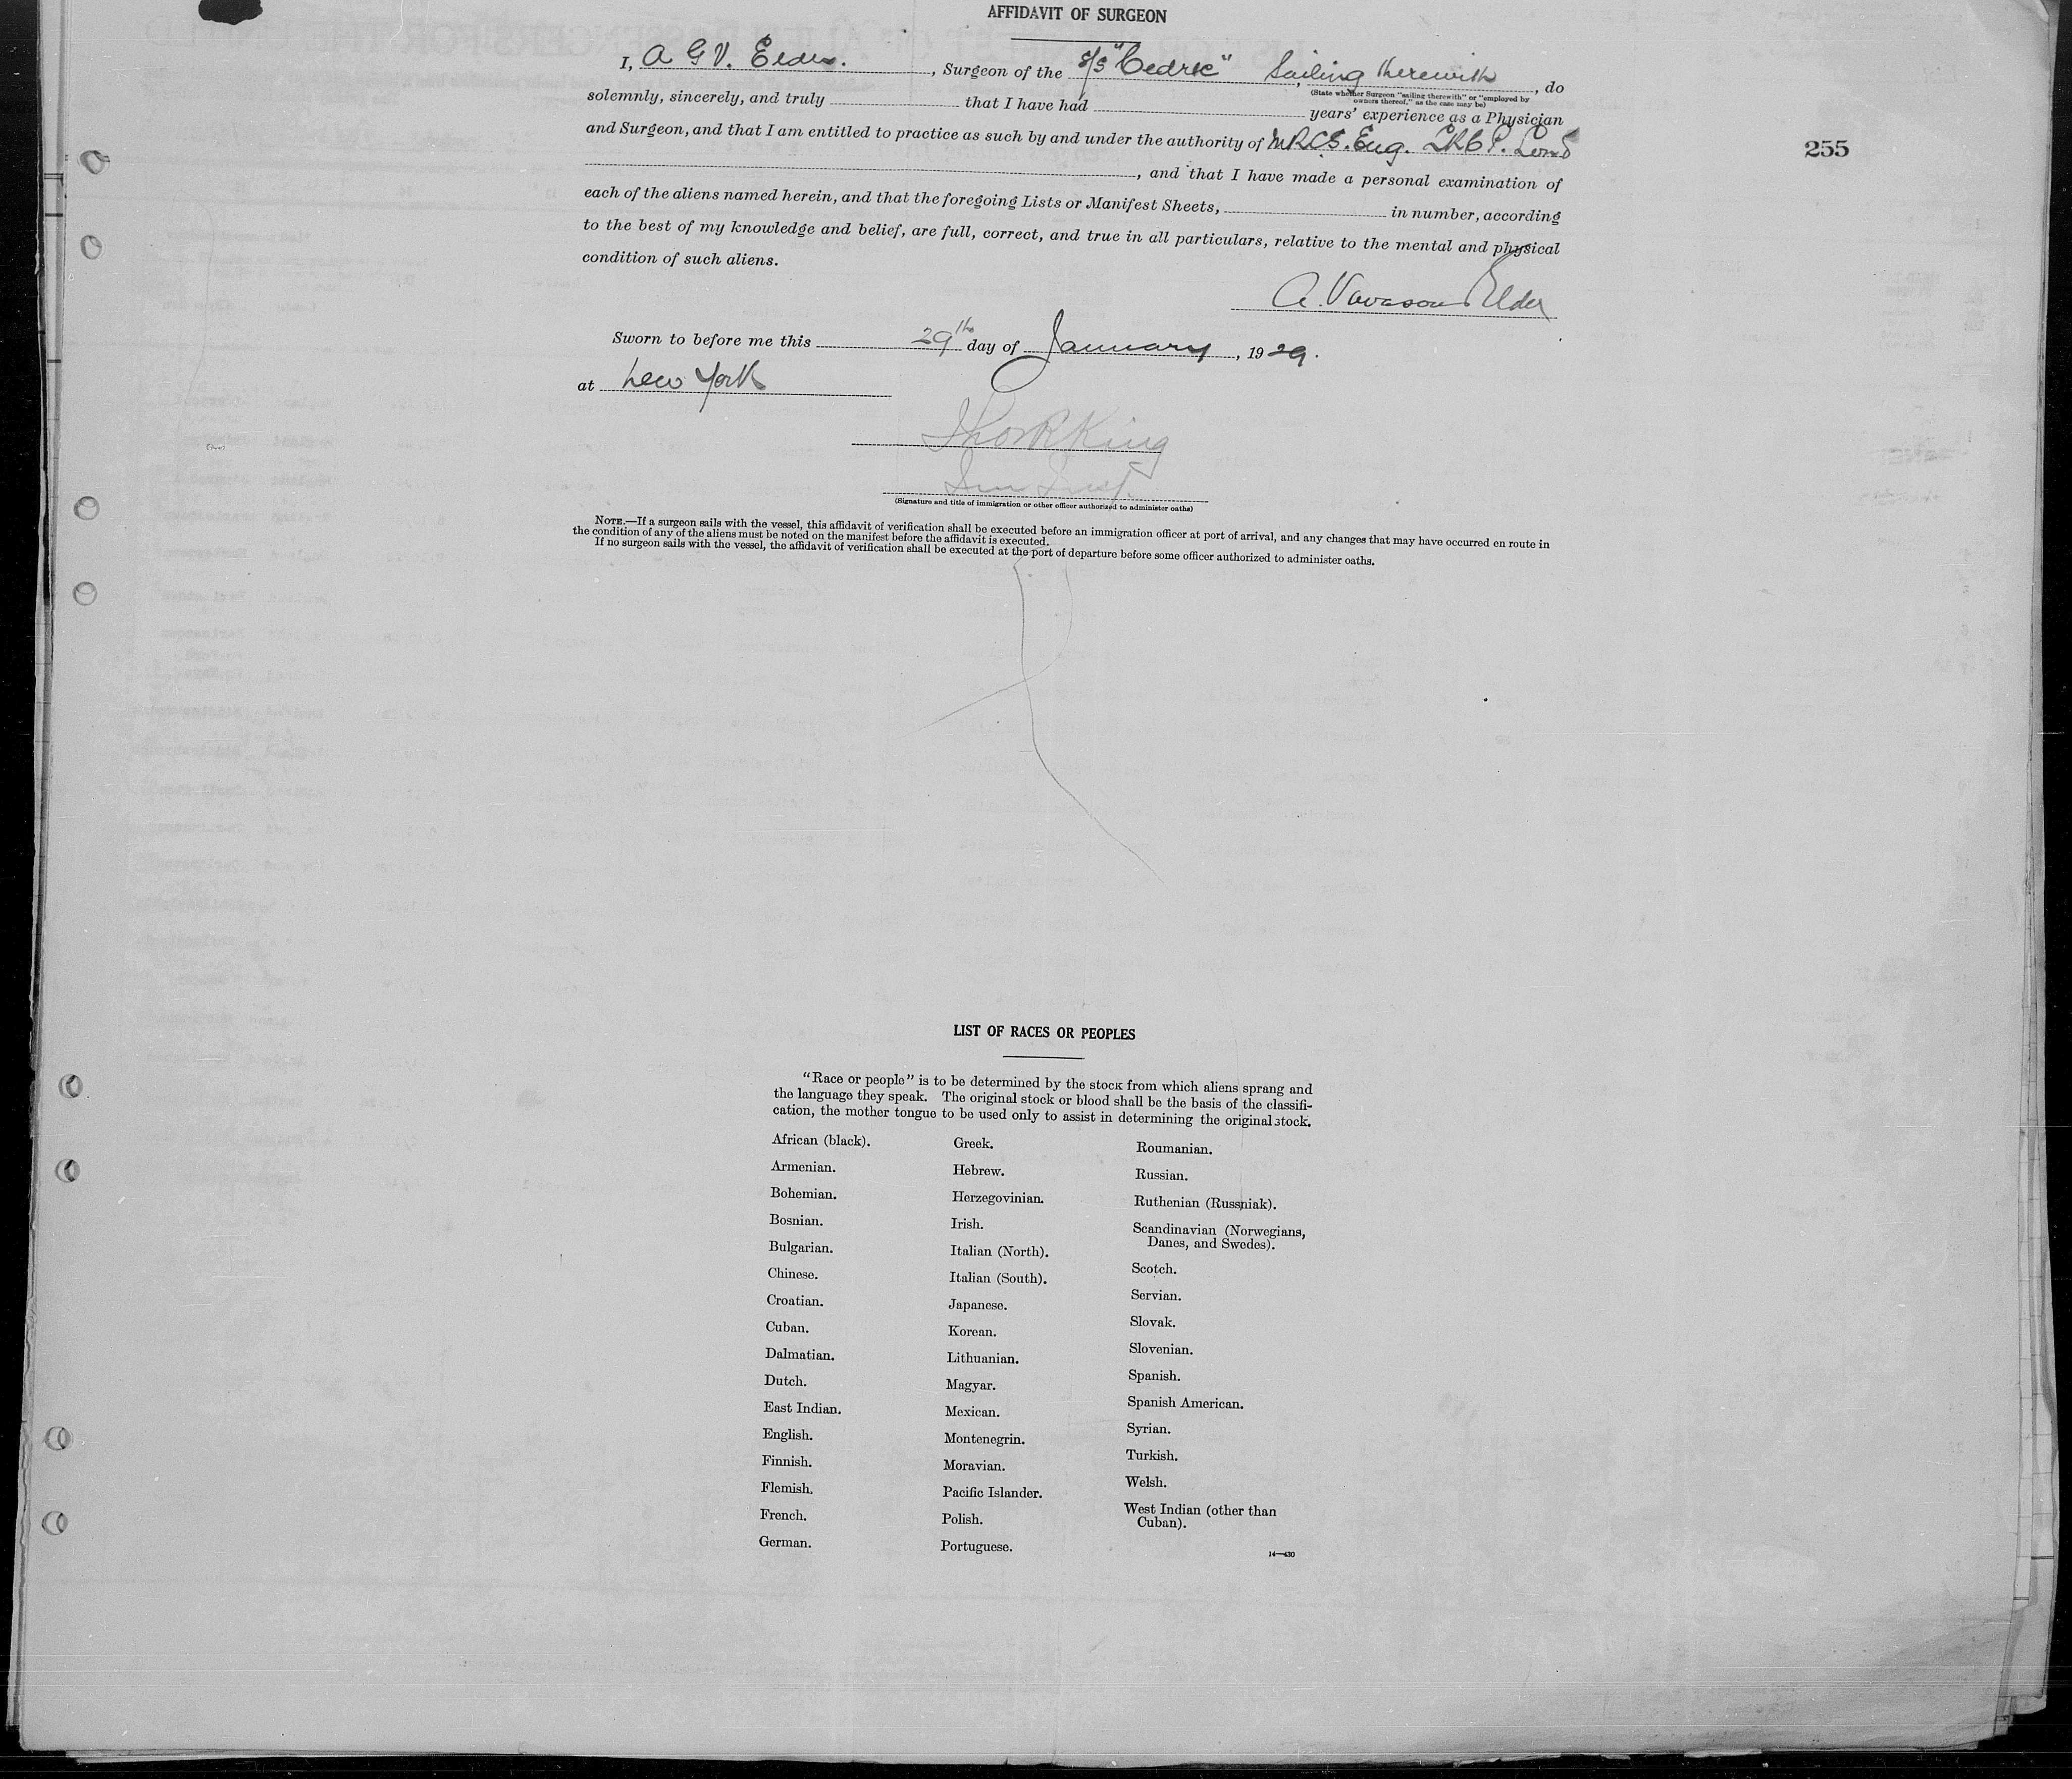 AFFIDAVIT OF SURGEON
I, A G V. Elder. , Surgeon of the s/s "Cedric" , Sailing therewith , do
(State whether Surgeon "sailing therewith" or "employed by
owners thereof," as the case may be)
solemnly, sincerely, and truly that I have had years' experience as a Physician
and Surgeon, and that I am entitled to practice as such by and under the authority of MRCS. Eng. LRCP. Lond
255
, and that I have made a personal examination of
each of the aliens named herein, and that the foregoing Lists or Manifest Sheets, in number, according
to the best of my knowledge and belief, are full, correct, and true in all particulars, relative to the mental and physical
condition of such aliens.
A. Vavasour Elder
Sworn to before me this 29th day of January , 1929.
at New York
Thos R King
Imm Insp.
(Signature and title of immigration or other officer authorized to administer oaths)
NOTE.—If a surgeon sails with the vessel, this affidavit of verification shall be executed before an immigration officer at port of arrival, and any changes that may have occurred en route in
the condition of any of the aliens must be noted on the manifest before the affidavit is executed.
If no surgeon sails with the vessel, the affidavit of verification shall be executed at the port of departure before some officer authorized to administer oaths.
LIST OF RACES OR PEOPLES
"Race or people" is to be determined by the stock from which aliens sprang and
the language they speak. The original stock or blood shall be the basis of the classifi-
cation, the mother tongue to be used only to assist in determining the original stock.
African (black).
Armenian.
Bohemian.
Bosnian.
Bulgarian.
Chinese.
Croatian.
Cuban.
Dalmatian.
Dutch.
East Indian.
English.
Finnish.
Flemish.
French.
German.
Greek.
Hebrew.
Herzegovinian.
Irish.
Italian (North).
Italian (South).
Japanese.
Korean.
Lithuanian.
Magyar.
Mexican.
Montenegrin.
Moravian.
Pacific Islander.
Polish.
Portuguese.
Roumanian.
Russian.
Ruthenian (Russniak).
Scandinavian (Norwegians,
Danes, and Swedes).
Scotch.
Servian.
Slovak.
Slovenian.
Spanish.
Spanish American.
Syrian.
Turkish.
Welsh.
West Indian (other than
Cuban).
14—430